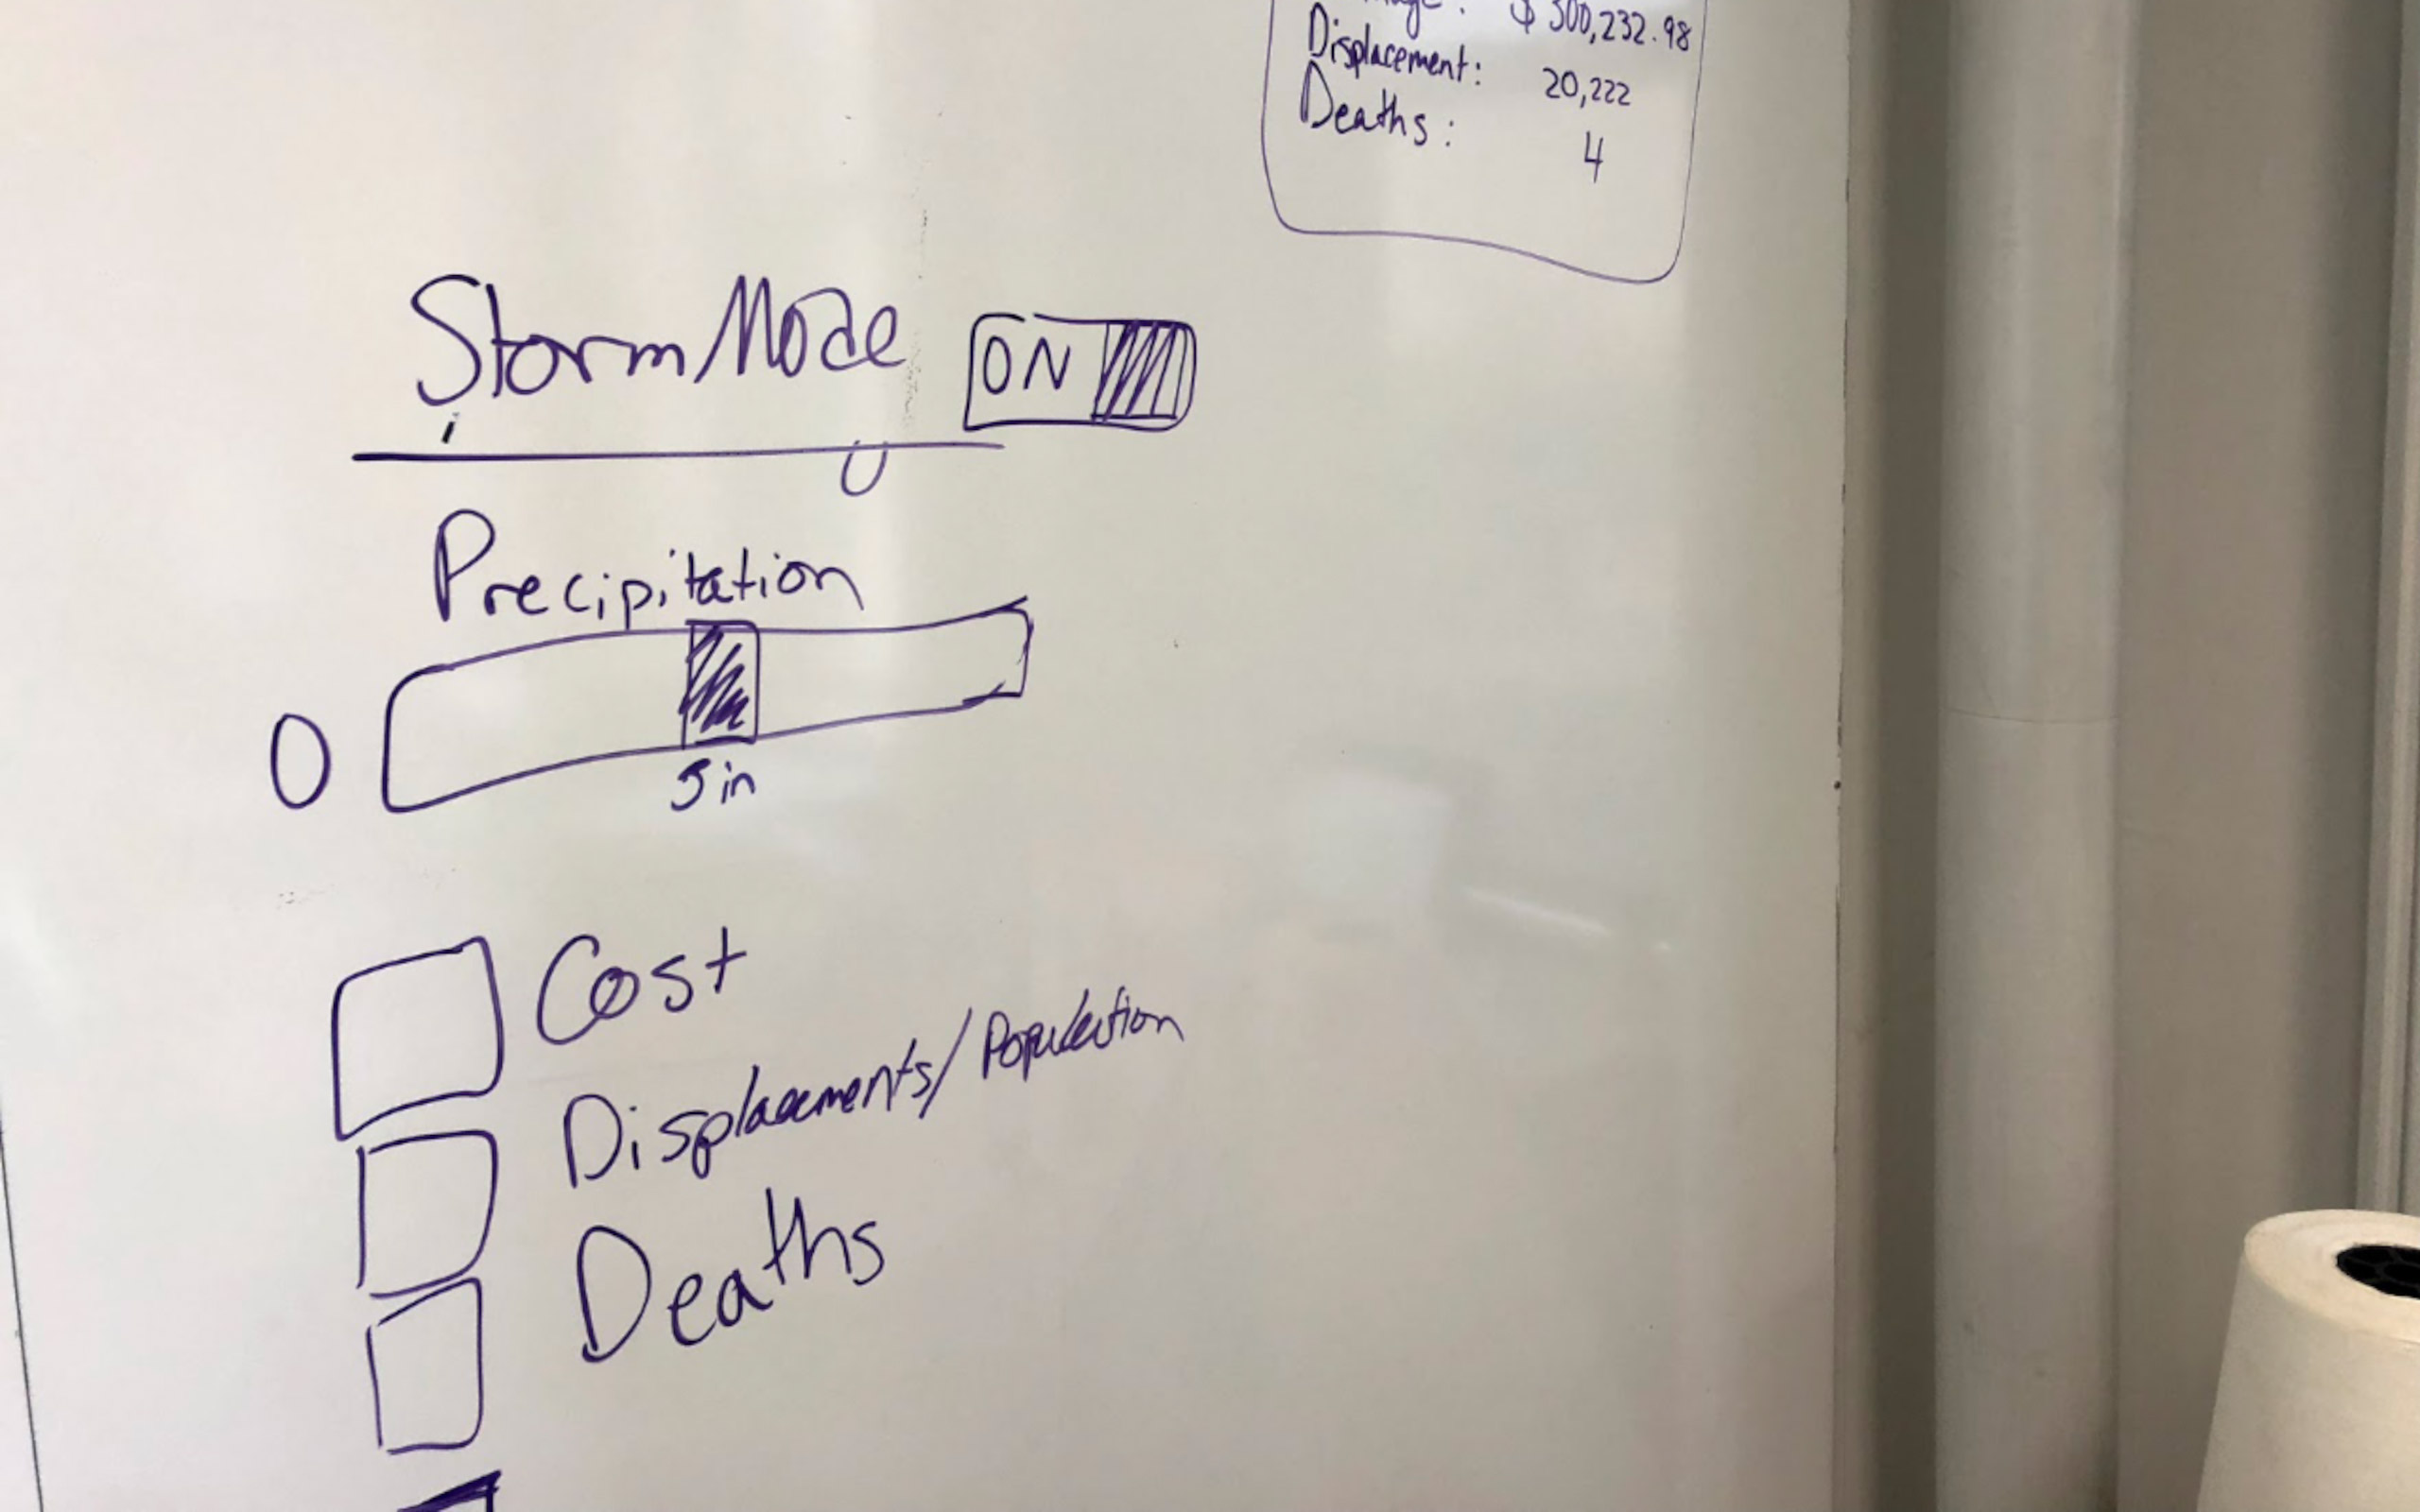 $ 300,232.98
Displacement: 20,222
Deaths: 4
Storm Mode ON
Precipitation
0
5 in
Cost
Displacements/Population
Deaths